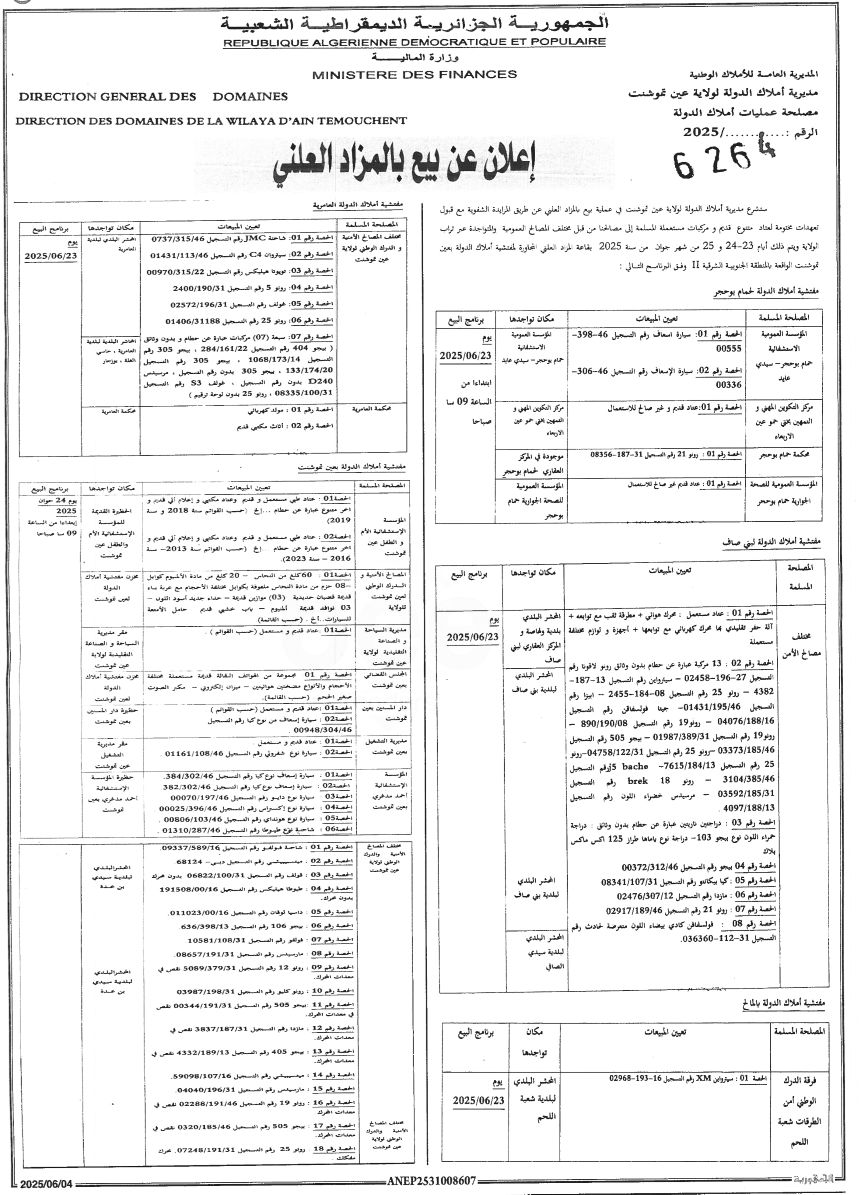 الجمهورية الجزائرية الديمقراطية الشعبية
REPUBLIQUE ALGERIENNE DEMOCRATIQUE ET POPULAIRE
وزارة المالية
MINISTERE DES FINANCES
DIRECTION GENERAL DES DOMAINES
DIRECTION DES DOMAINES DE LA WILAYA D'AIN TEMOUCHENT
المديرية العامة للأملاك الوطنية
مديرية أملاك الدولة لولاية عين تموشنت
مصلحة عمليات أملاك الدولة
الرقم :............/2025
6264
إعلان عن بيع بالمزاد العلني
ستشرع مديرية أملاك الدولة لولاية عين تموشنت في عملية بيع بالمزاد العلني عن طريق المزايدة الشفوية مع قبول
تعهدات مختومة لعتاد متنوع قديم و مركبات مستعملة المسلمة إلى مصالحنا من قبل مختلف المصالح العمومية والمتواجدة عبر تراب
الولاية ويتم ذلك أيام 23-24 و 25 من شهر جوان من سنة 2025 بقاعة المزاد العلني المجاورة لمفتشية أملاك الدولة بعين
تموشنت الواقعة بالمنطقة الجنوبية الشرقية II وفق البرنامج التالي :
مفتشية أملاك الدولة لحمام بوحجر
المصلحة المسلمة
تعيين المبيعات
مكان تواجدها
برنامج البيع
المؤسسة العمومية
الاستشفائية
حمام بوحجر- سيدي
عابد
الحصة رقم 01: سيارة اسعاف رقم التسجيل 46-398-
00555
الحصة رقم 02: سيارة الإسعاف رقم التسجيل 46-306-
00336
المؤسسة العمومية
الاستشفائية
حمام بوحجر- سيدي عابد
يوم
2025/06/23
ابتداءا من
الساعة 09 سا
صباحا
مركز التكوين المهني و
التمهين يختي حمو عين
الاربعاء
الحصة رقم 01:عتاد قديم و غير صالح للاستعمال
مركز التكوين المهني و
التمهين يختي حمو عين
الاربعاء
محكمة حمام بوحجر
الحصة رقم 01 : رونو 21 رقم التسجيل 31-187-08356
موجودة في المركز
العقاري لحمام بوحجر
المؤسسة العمومية للصحة
الجوارية حمام بوحجر
الحصة رقم 01 : عتاد قديم غير صالح للاستعمال
المؤسسة العمومية
للصحة الجوارية حمام
بوحجر
مفتشية أملاك الدولة لبني صاف
المصلحة
المسلمة
تعيين المبيعات
مكان تواجدها
برنامج البيع
مختلف
مصالح الأمن
الحصة رقم 01 : عتاد مستعمل : محرك هوائي + مطرقة ثقب مع توابعه +
آلة حفر تقليدي بها محرك كهربائي مع توابعها + أجهزة و لوازم مختلفة
مستعملة
الحصة رقم 02 : 13 مركبة عبارة عن حطام بدون وثائق رونو لاقونا رقم
التسجيل 27-196-02458 – سيتروان رقم التسجيل 13-187-
4382 – رونو 25 رقم التسجيل 08-184-2455 – ابيزا رقم
التسجيل 01431/195/46- جيتا فولسفاقن رقم التسجيل
04076/188/16 – رونو19 رقم التسجيل 890/190/08 –
رونو19 رقم التسجيل 01987/389/31 – بيجو 505 رقم التسجيل
03373/185/46 – رونو 25 رقم التسجيل 04758/122/31–رونو
25 رقم التسجيل 7615/184/13– 5 bache رقم التسجيل
3104/385/46 – رونو 18 brek رقم التسجيل
03592/185/31 – مرسيدس خضراء اللون رقم التسجيل
4097/188/13 .
الحصة رقم 03 : دراجتين ناريتين عبارة عن حطام بدون وثائق : دراجة
حمراء اللون نوع بيجو 103– دراجة نوع ياماها طراز 125 اكس ماكس
بلاك
الحصة رقم 04 بيجو رقم التسجيل 00372/312/46
الحصة رقم 05 : كيا بيكانتو رقم التسجيل 08341/107/31
الحصة رقم 06 : مازدا رقم التسجيل 02476/307/12
الحصة رقم 07 : رونو 21 رقم التسجيل 02917/189/46
الحصة رقم 08 : فولسفاقن كادي بيضاء اللون متعرضة لحادث رقم
التسجيل 31-112-036360.
المحشر البلدي
بلدية ولهاصة و
المركز العقاري لبني
صاف
المحشر البلدي
لبلدية بني صاف
المحشر البلدي
لبلدية بني صاف
المحشر البلدي
لبلدية سيدي
الصافي
يوم
2025/06/23
مفتشية أملاك الدولة بالمالح
المصلحة المسلمة
تعيين المبيعات
مكان
تواجدها
برنامج البيع
فرقة الدرك
الوطني أمن
الطرقات شعبة
اللحم
الحصة رقم 01 : سيتروان XM رقم التسجيل 16-193-02968
المحشر البلدي
لبلدية شعبة
اللحم
يوم
2025/06/23
مفتشية أملاك الدولة العامرية
المصلحة المسلمة
تعيين المبيعات
مكان تواجدها
برنامج البيع
مختلف المصالح الأمنية
و الدرك الوطني لولاية
عين تموشنت
الحصة رقم 01: شاحنة JMC رقم التسجيل 0737/315/46
الحصة رقم 02: سيتروان C4 رقم التسجيل 01431/113/46
الحصة رقم 03: تويوتا هيليكس رقم التسجيل 00970/315/22
الحصة رقم 04: رونو 5 رقم التسجيل 2400/190/31
الحصة رقم 05: غولف رقم التسجيل 02572/196/31
الحصة رقم 06: رونو 25 رقم التسجيل 01406/31188
الحصة رقم 07: سبعة (07) مركبات عبارة عن حطام و بدون وثائق
( بيجو 404 رقم التسجيل 284/161/22 ، بيجو 305 رقم
التسجيل 1068/173/14 ، بيجو 305 رقم التسجيل
133/174/20 ، بيجو 305 بدون رقم التسجيل ، مرسيدس
D240 بدون رقم التسجيل ، غولف S3 رقم التسجيل
08335/100/31 ، رونو 25 بدون لوحة ترقيم )
المحشر البلدي لبلدية
العامرية
المحاشر البلدية لبلدية
العامرية ، حاسي
الغلة ، بوزجار
يوم
2025/06/23
محكمة العامرية
الحصة رقم 01 : مولد كهربائي
الحصة رقم 02 : أثاث مكتبي قديم
محكمة العامرية
مفتشية أملاك الدولة بعين تموشنت
المصلحة المسلمة
تعيين المبيعات
مكان تواجدها
برنامج البيع
المؤسسة
الإستشفائية الأم
و الطفل عين
تموشنت
الحصة01 : عتاد طبي مستعمل و قديم وعتاد مكتبي و إعلام آلي قديم و
آخر متنوع عبارة عن حطام ...إلخ (حسب القوائم سنة 2018 و سنة
2019)
الحصة02 : عتاد طبي مستعمل و قديم وعتاد مكتبي و إعلام آلي قديم و
آخر متنوع عبارة عن حطام ...إلخ (حسب القوائم سنة 2013– سنة
2016 – سنة 2023).
الحظيرة القديمة
للمؤسسة
الإستشفائية الأم
والطفل عين
تموشنت
يوم 24 جوان
2025
إبتداءا من الساعة
09 سا صباحا
المصالح الأمنية و
الدرك الوطني
للولاية
الحصة01 : 60كلغ من النحاس – 20 كلغ من مادة الألمنيوم كوابل
–08 حزم من مادة النحاس ملفوفة بكوابل مختلفة الأحجام مع عربة بناء
قديمة قضبان حديدية (03) موازين قديمة – حذاء جديد أسود اللون –
03 نوافذ قديمة ألمنيوم – باب خشبي قديم حامل الأمتعة
للسيارات..الخ. (حسب القائمة)
مخزن مفتشية أملاك
الدولة
لعين تموشنت
مديرية السياحة
و الصناعة
التقليدية لولاية
عين تموشنت
الحصة01 : عتاد قديم و مستعمل (حسب القوائم) .
مقر مديرية
السياحة و الصناعة
التقليدية لولاية
عين تموشنت
المجلس القضائي
بعين تموشنت
الحصة رقم 01 مجموعة من الهواتف النقالة قديمة مستعملة مختلفة
الأحجام والأنواع مضختين هوائيتين – ميزان إلكتروني – مكبر الصوت
صغير الحجم (حسب القائمة).
مخزن مفتشية أملاك
الدولة
لعين تموشنت
دار المسنين بعين
تموشنت
الحصة01 : عتاد قديم و مستعمل (حسب القوائم)
الحصة02 : سيارة إسعاف من نوع كيا رقم التسجيل
00948/304/46.
حظيرة دار المسنين
بعين تموشنت
مديرية التشغيل
بعين تموشنت
الحصة01 : عتاد قديم و مستعمل
الحصة02 : سيارة نوع شفرولي رقم التسجيل 01161/108/46.
مقر مديرية
التشغيل
عين تموشنت
المؤسسة
الإستشفائية
أحمد مدغري
بعين تموشنت
الحصة01 : سيارة إسعاف نوع كيا رقم التسجيل 384/302/46.
الحصة02 : سيارة إسعاف نوع كيا رقم التسجيل 382/302/46
الحصة03 : سيارة نوع دايو رقم التسجيل 00070/197/46
الحصة04 : سيارة نوع إكسراس رقم التسجيل 00025/396/46
الحصة05 : سيارة نوع هونداي رقم التسجيل 00806/103/46.
الحصة06 : شاحنة نوع طيوطا رقم التسجيل 01310/287/46.
حظيرة المؤسسة
الإستشفائية
أحمد مدغري بعين
تموشنت
مختلف المصالح
الأمنية والدرك
الوطني لولاية
عين تموشنت
الحصة رقم 01 : شاحنة فولفو رقم التسجيل 09337/589/16.
الحصة رقم 02 : ميتسيبيشي رقم التسجيل دبي– 68124
الحصة رقم 03 : قولف رقم التسجيل 06822/100/31 بدون محرك
الحصة رقم 04 : طيوطا هيليكس رقم التسجيل 191508/00/16
بدون محرك.
الحصة رقم 05 : داسيا لوقان رقم التسجيل 011023/00/16
الحصة رقم 06 : بيجو 106 رقم التسجيل 636/398/13
الحصة رقم 07 : فولفو رقم التسجيل 10581/108/31
الحصة رقم 08 : مارسيدس رقم التسجيل 08657/191/31.
الحصة رقم 09 : رونو 12 رقم التسجيل 5089/379/31 نقص في
معدات المحرك.
الحصة رقم 10 : رونو كليو رقم التسجيل 03987/198/31
الحصة رقم 11 : بيجو 505 رقم التسجيل 00344/191/31 نقص
في معدات المحرك.
الحصة رقم 12 : مازدا رقم التسجيل 3837/187/31 نقص في
معدات المحرك.
الحصة رقم 13 : بيجو 405 رقم التسجيل 4332/189/13 نقص في
معدات المحرك.
الحصة رقم 14 : ميتسيبيشي رقم التسجيل 59098/107/16.
الحصة رقم 15 : مارسيدس رقم التسجيل 04040/196/31.
الحصة رقم 16 : رونو 19 رقم التسجيل 02288/191/46 نقص في
معدات المحرك.
الحصة رقم 17 : بيجو 505 رقم التسجيل 0320/185/46 نقص في
معدات المحرك.
الحصة رقم 18 رونو 25 رقم التسجيل 07248/191/31. محرك
مفكك
المحشرالبلدي
لبلدية سيدي
بن عدة
المحشرالبلدي
لبلدية سيدي
بن عدة
مختلف المصالح
الأمنية والدرك
الوطني لولاية
عين تموشنت
2025/06/04
ANEP2531008607
الجمهورية